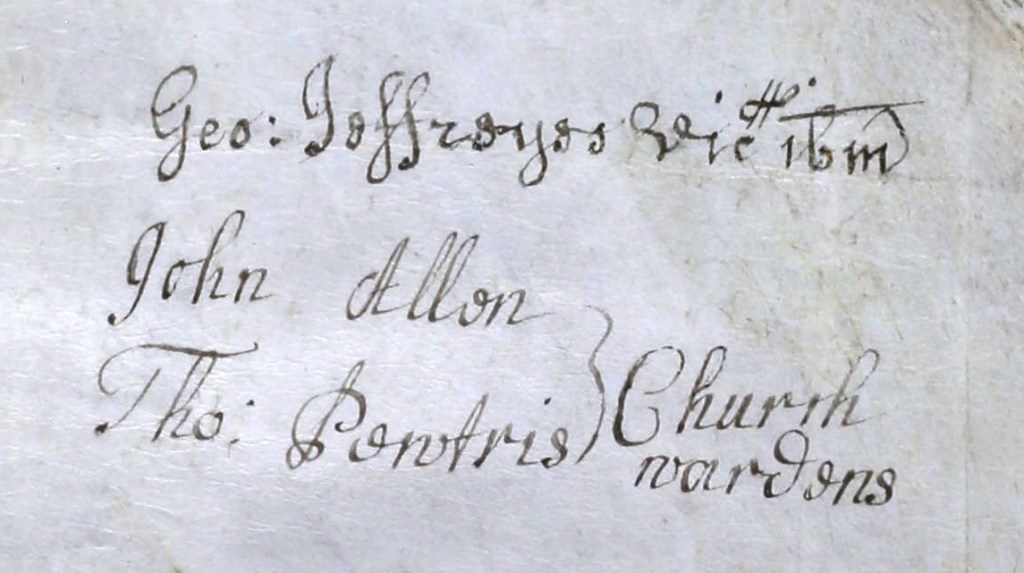 Geo: Jeffreyes Vic ibm
John Allen
Tho: Pewtris } Church
wardens